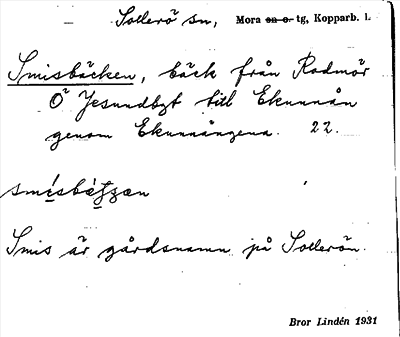 Sollerö sn, Mora on o. tg, Kopparb. l.
Smisbäcken, bäck från Rodmör
Ö Jesundbyt till Ekunnån
genom Ekunnångena. 22.
Smis är gårdsnamn på Sollerön.
Bror Lindén 1931